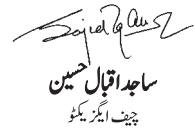 ساجد اقبال حسین
چیف ایگزیکٹو